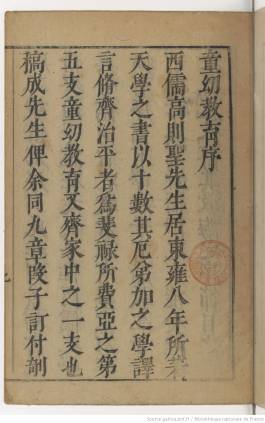 童幼教育序
西儒高則聖先生居東雍八年所著
天學之書以十數其厄弟加之學譯
言脩齊治平者爲斐祿所費亞之第
五支童幼教育又齊家中之一支也
稿成先生俾余同九章陵子訂付剞
Source gallica.bnf.fr / Bibliothèque nationale de France